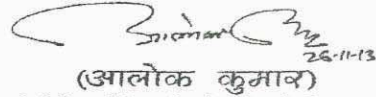 26-11-13
(आलोक कुमार)